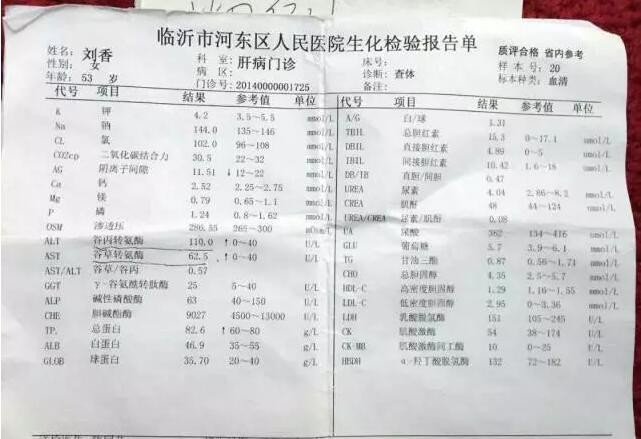 临沂市河东区人民医院生化检验报告单
姓名: 刘香
性别: 女
年龄: 53 岁
科室: 肝病门诊
病区:
门诊号: 20140000001725
床号:
诊断: 查体
备注:
质评合格 省内参考
样本号: 20
标本种类: 血清
代号 项目 结果 参考值 单位
K 钾 4.2 3.5~5.5 mmol/L
Na 钠 144.0 135~146 mmol/L
CL 氯 102.0 96~108 mmol/L
CO2cp 二氧化碳结合力 30.5 22~32 mmol/L
AG 阴离子间隙 11.51 ↓ 12~22 mmol/L
Ca 钙 2.52 2.25~2.75 mmol/L
Mg 镁 0.79 0.65~1.1 mmol/L
P 磷 1.24 0.8~1.62 mmol/L
OSM 渗透压 286.55 265~300
ALT 谷丙转氨酶 110.0 ↑ 0~40 U/L
AST 谷草转氨酶 62.5 ↑ 0~40 U/L
AST/ALT 谷草/谷丙 0.57
GGT γ-谷氨酰转肽酶 25 5~40 U/L
ALP 碱性磷酸酶 63 40~150 U/L
CHE 胆碱酯酶 9027 4500~13000 U/L
TP. 总蛋白 82.6 ↑ 60~80 g/L
ALB 白蛋白 46.9 35~55 g/L
GLOB 球蛋白 35.70 20~40 g/L
代号 项目 结果 参考值 单位
A/G 白/球 1.31
TBIL 总胆红素 15.3 0~17.1 umol/L
DBIL 直接胆红素 4.89 0~5 umol/L
IBIL 间接胆红素 10.42 1.6~18 umol/L
DB/IB 直胆/间胆 0.47
UREA 尿素 4.04 2.86~8.2 mmol/L
CREA 肌酐 48 44~124 umol/L
UREA/CREA 尿素/肌酐 0.08
UA 尿酸 362 134~416 umol/L
GLU 葡萄糖 5.7 3.9~6.1 mmol/L
TG 甘油三酯 0.87 0.56~1.71 mmol/L
CHO 总胆固醇 4.35 2.5~5.7 mmol/L
HDL-C 高密度胆固醇 1.29 1.16~1.55 mmol/L
LDL-C 低密度胆固醇 2.95 0~3.36 mmol/L
LDH 乳酸脱氢酶 151 105~245 U/L
CK 肌酸激酶 54 38~174 U/L
CK-MB 肌酸激酶同工酶 10 0~25 U/L
HBDH α-羟丁酸脱氢酶 132 72~182 U/L